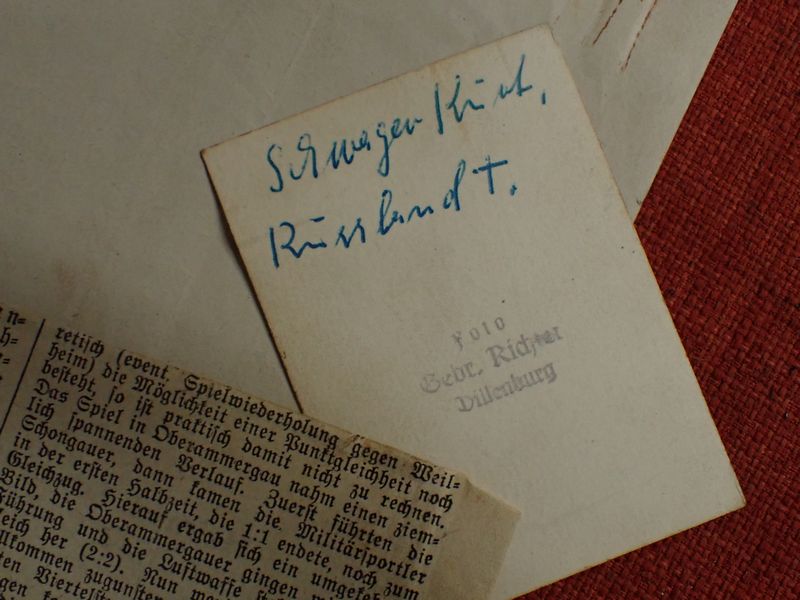 Schwager Kurt,
Russland †.
Foto
Gebr. Richter
Dillenburg
retisch (event. Spielwiederholung gegen Weil-
heim) die Möglichkeit einer Punktgleichheit noch
besteht, so ist praktisch damit nicht zu rechnen.
Das Spiel in Oberammergau nahm einen ziem-
lich spannenden Verlauf. Zuerst führten die
Schongauer, dann kamen die Militärsportler
in der ersten Halbzeit, die 1:1 endete, noch zum
Gleichzug. Hierauf ergab sich ein umgekeh
Bild, die Oberammergauer gingen
Führung und die Luftwaffe
leich her (2:2). Nun
llkommen zugunsten
ten Viertelst
gen